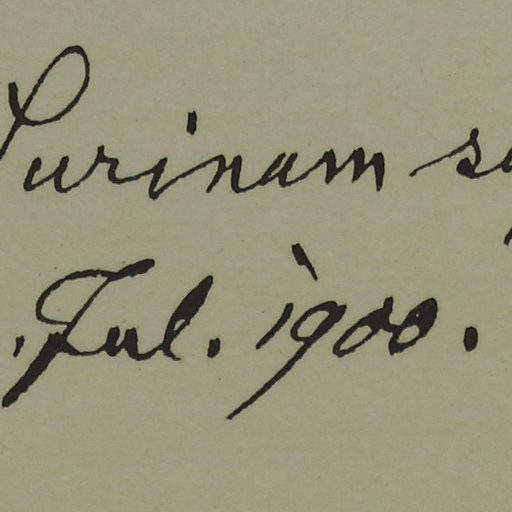 Surinam
. Jul. 1900.